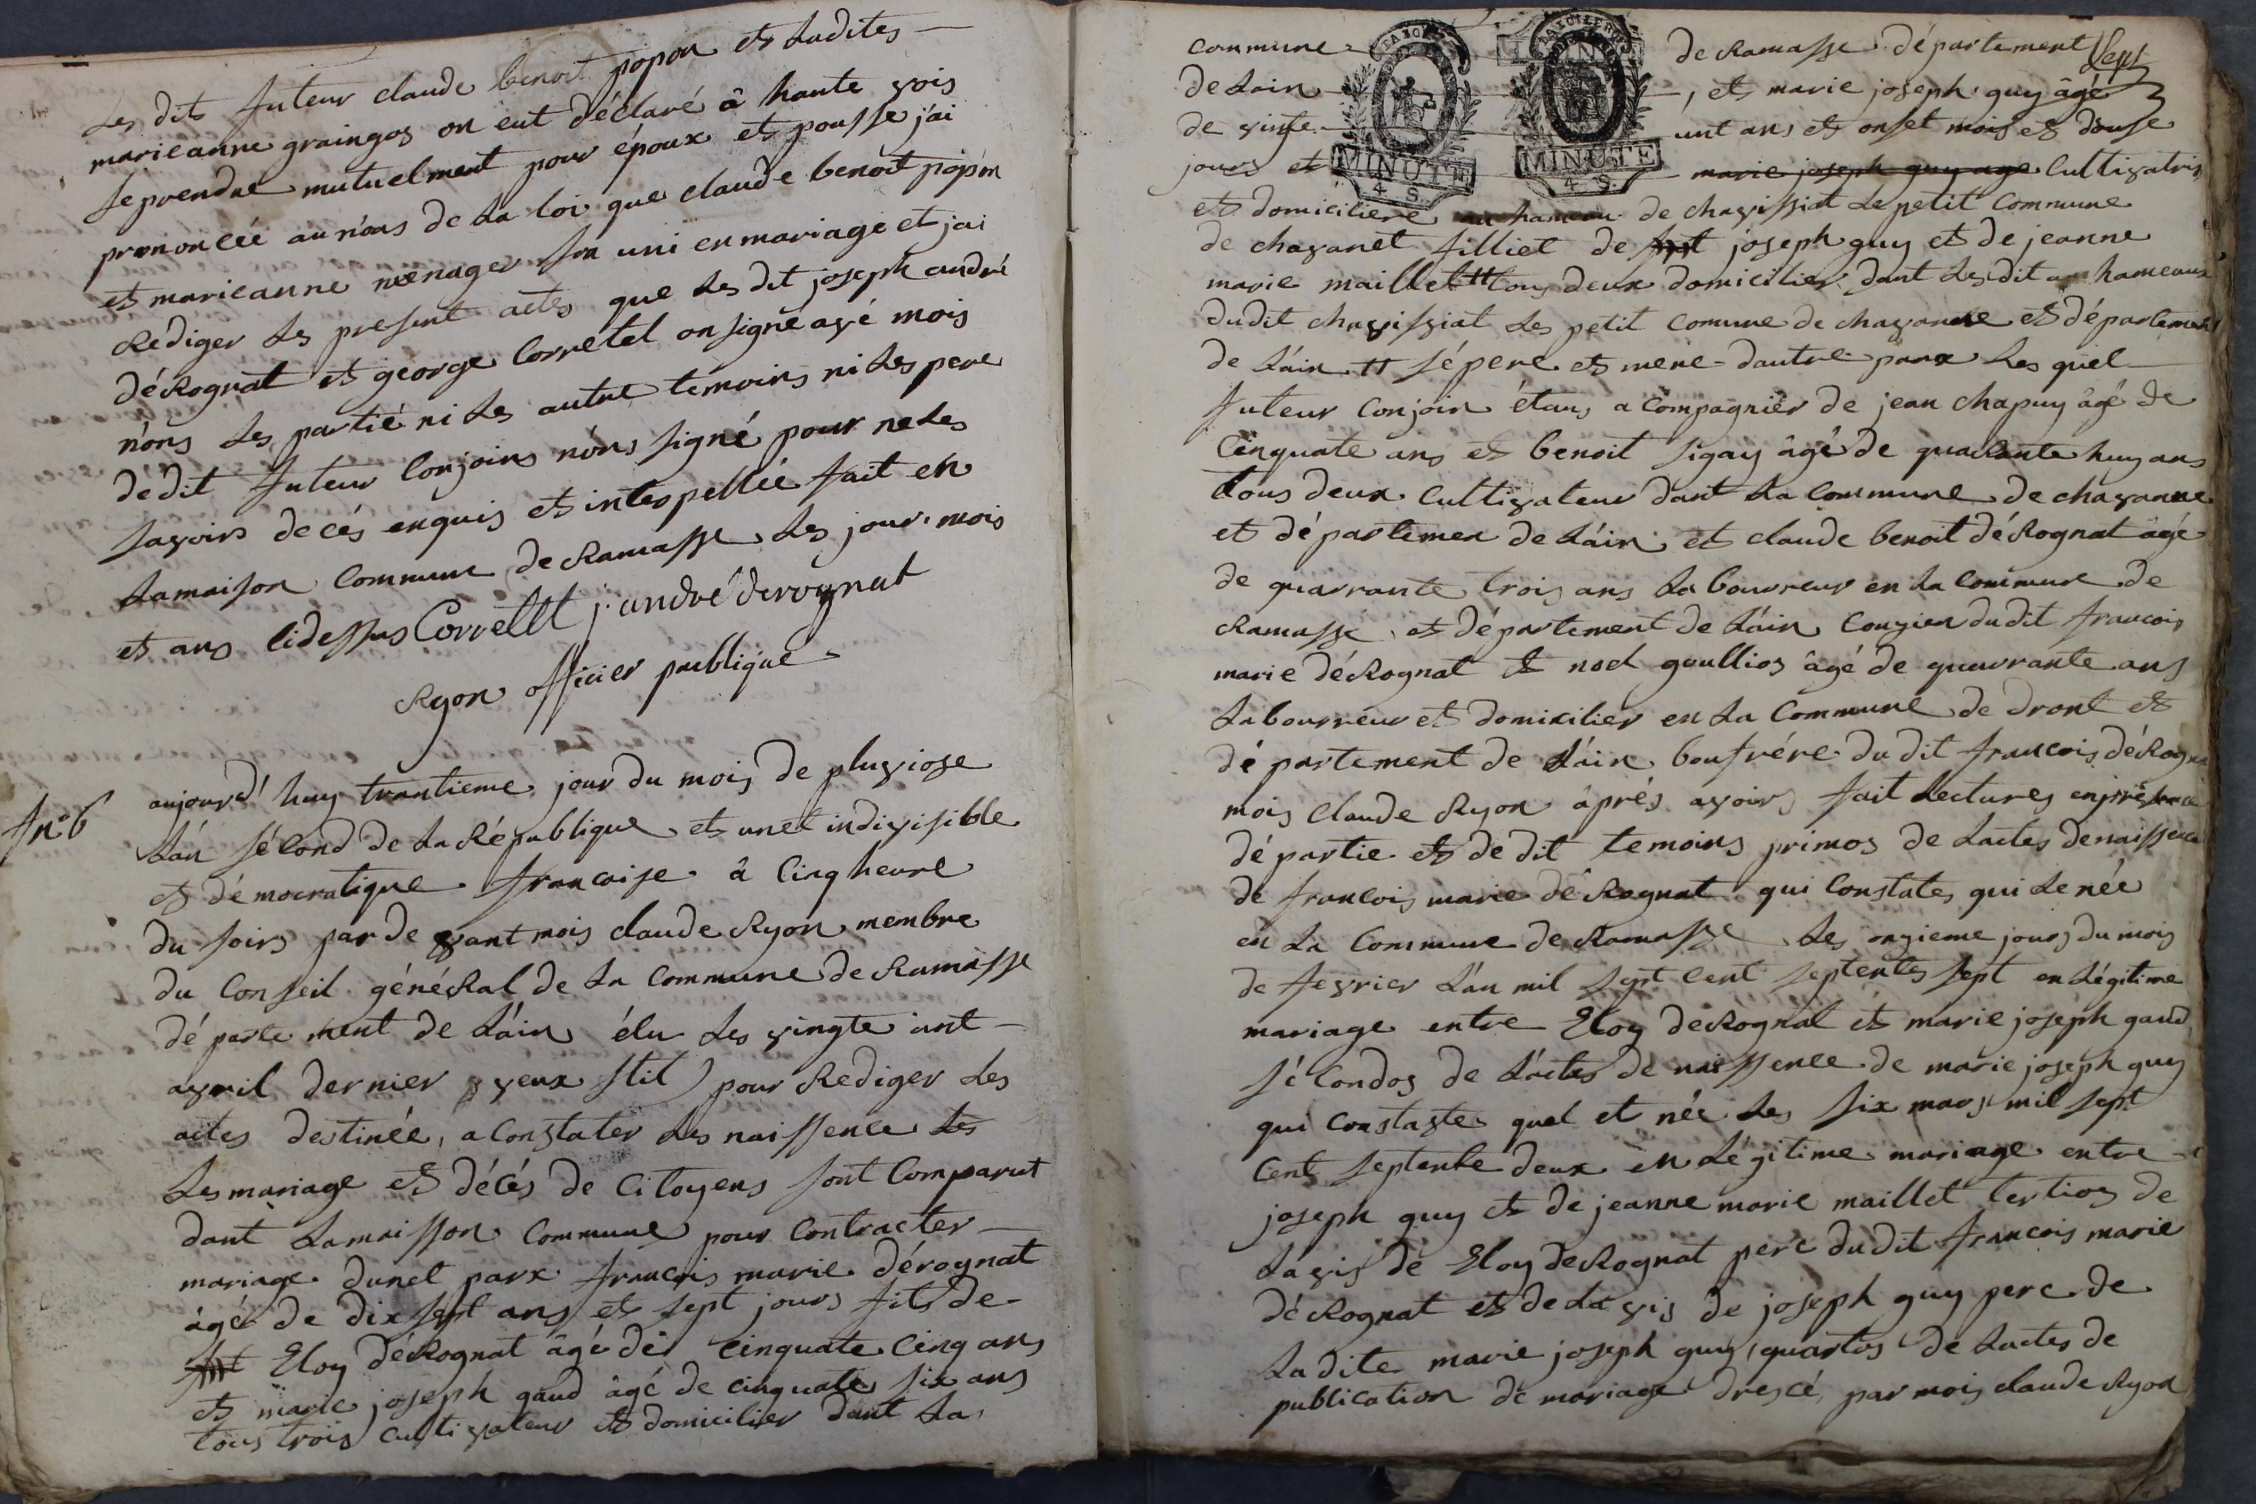 Les dit futeur claude benoit popon et Ladites
marieanne graingos on eut déclaré â haute vois
se prendre mutuelment pour époux et pousse j'ai
prononcéé au nons de La loi que claude benoit popon
et marieanne menager son uni en mariage et jai
Rediger Les present actes que Les dit joseph andré
déRognat et george Corretel on signé avé mois
nons Les partié ni Les autre temoins ni Les pere
dédit futeur Conjoins nons signé pour ne Les
savoirs de cés enquis et interpellée fait en
Lamaison Commune de Ramasse Les jour mois
et ans Cidessus Corretet j. andré derognat
Ryon officier publique
n° 6
aujourd'huy trantieme jour du mois de pluviose
L'an sécond de La République et unet indivisible
et démocratique francaise â Cinq heure
du soirs par de vant mois claude Ryon membre
du Conseil généRal de La Commune de Ramasse
département de L'ain élu Les vingte unt
avril dernier (veux stil) pour Rediger Les
actes destinéé, a Constater Les naissence Les
Les mariage et décés de Citoyens sont Comparut
dant Lamaisson Commune pour Contracter
mariage dunet parx francois marie dérognat
âgé de dix sept ans et sept jours fils de
Eloy déRognat âgé de Cinquate Cinq ans
et marie joseph gaud âgé de cinquate six ans
tous trois Cultivateur et domicilier dant La
sept
commune de Ramasse département
de Lain, et marie joseph guy âgé
de vinte unt ans et onset mois et douse
jours et marie joseph guy age Cultivatris
et domiciliere au hameau de chavissiat Le petit Commune
de chavanet filliet de joseph guy et de jeanne
marie maillet tt tous deux domicilier dant Lesdit hameaux
dudit chavissiat Les petit Comune de chavanne et département
de L'ain tt sépere et mere dautre parx Les quel
futeur Conjoin étans a compagnier de jean chapuy âgé de
Cinquate ans et benoit sigay âgé de quarante huy ans
tous deux Cultivateur dant La Commune de chavanne
et départemen de L'ain et claude benoit déRognat âgé
de quarrante trois ans Labourreur en La Commune de
Ramasse et département de L'ain Couzien dudit francois
marie déRognat et noel goullios âgé de quarrante ans
Labourreur et domicilier en La Commune de dront et
département de L'ain boufrére du dit francois déRogna
mois Claude Ryon âprés avoirs fait Lectures enprésence
départie et dedit temoins primos de Lactes denaissence
de francois marie déRognat qui Constates qui Le née
en La Commune de Ramasse Les onzieme jours du mois
de fevrier L'an mil sept cent septentes sept en Légitime
mariage entre Eloy déRognat et marie joseph gaud
sécondos de L'actes de naissence de marie joseph guy
qui Constaste quel et née Les six mars mil sept
Cent septente deux en Légitime mariage entre
joseph guy et de jeanne marie maillet tertios de
Lavis de Eloy deRognat pere dudit francois marie
déRognat et de La vis de joseph guy pere de
Ladite marie joseph guy quartos de Lactes de
publication de mariage drescé par mois claude Ryon